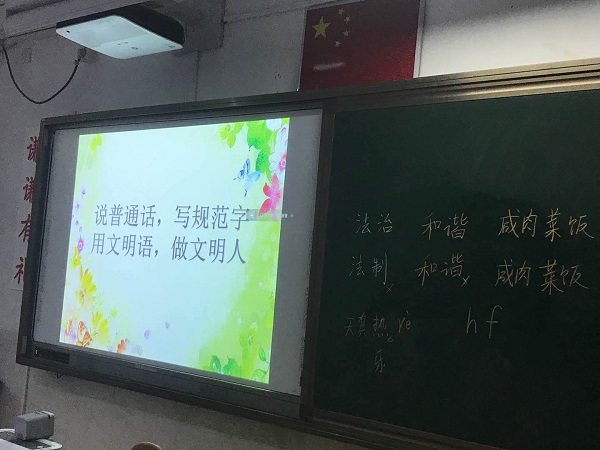 说普通话，写规范字
用文明语，做文明人
法治 和谐 咸肉菜饭
法制 和谐 咸肉菜饭
天真热 ye hf
乐
谢
谢
有
礼